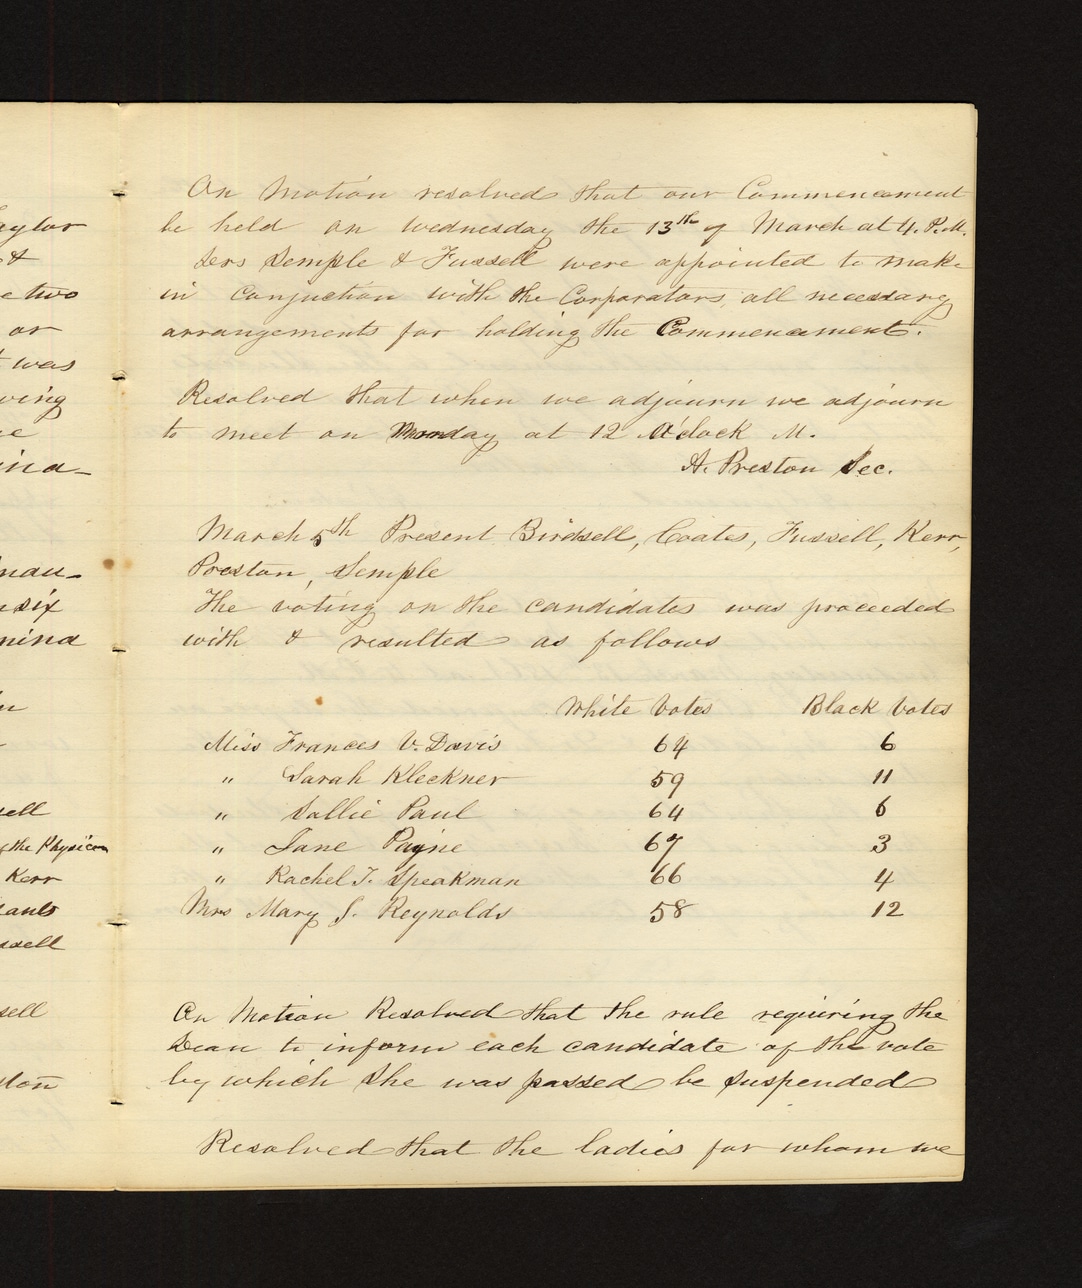 aylor
&
e two
or
t was
ving
ne
ina-
nau-
n six
nina
n
sell
of the Physican
Kerr
ssell
sell
ston
On Motion resolved that our Commencement
be held on Wednesday the 13th of March at 4. P.M.
Drs Semple & Fussell were appointed to make
in conjuction with the Corporators, all necessary
arrangements for holding the Commencement.
Resolved that when we adjourn we adjourn
to meet on Monday at 12 O'clock M.
A. Preston Sec.
March 5th Present Birdsell, Coates, Fussell, Kerr,
Preston, Semple
The voting on the candidates was proceeded
with & resulted as follows
White Votes Black Votes
Miss Frances V. Davis 64 6
" Sarah Kleckner 59 11
" Sallie Paul 64 6
" Jane Payne 67 3
" Rachel T. Speakman 66 4
Mrs Mary S. Reynolds 58 12
On Motion Resolved that the rule requiring the
Dean to inform each candidate of the vote
by which she was passed be suspended
Resolved that the ladies for whom we